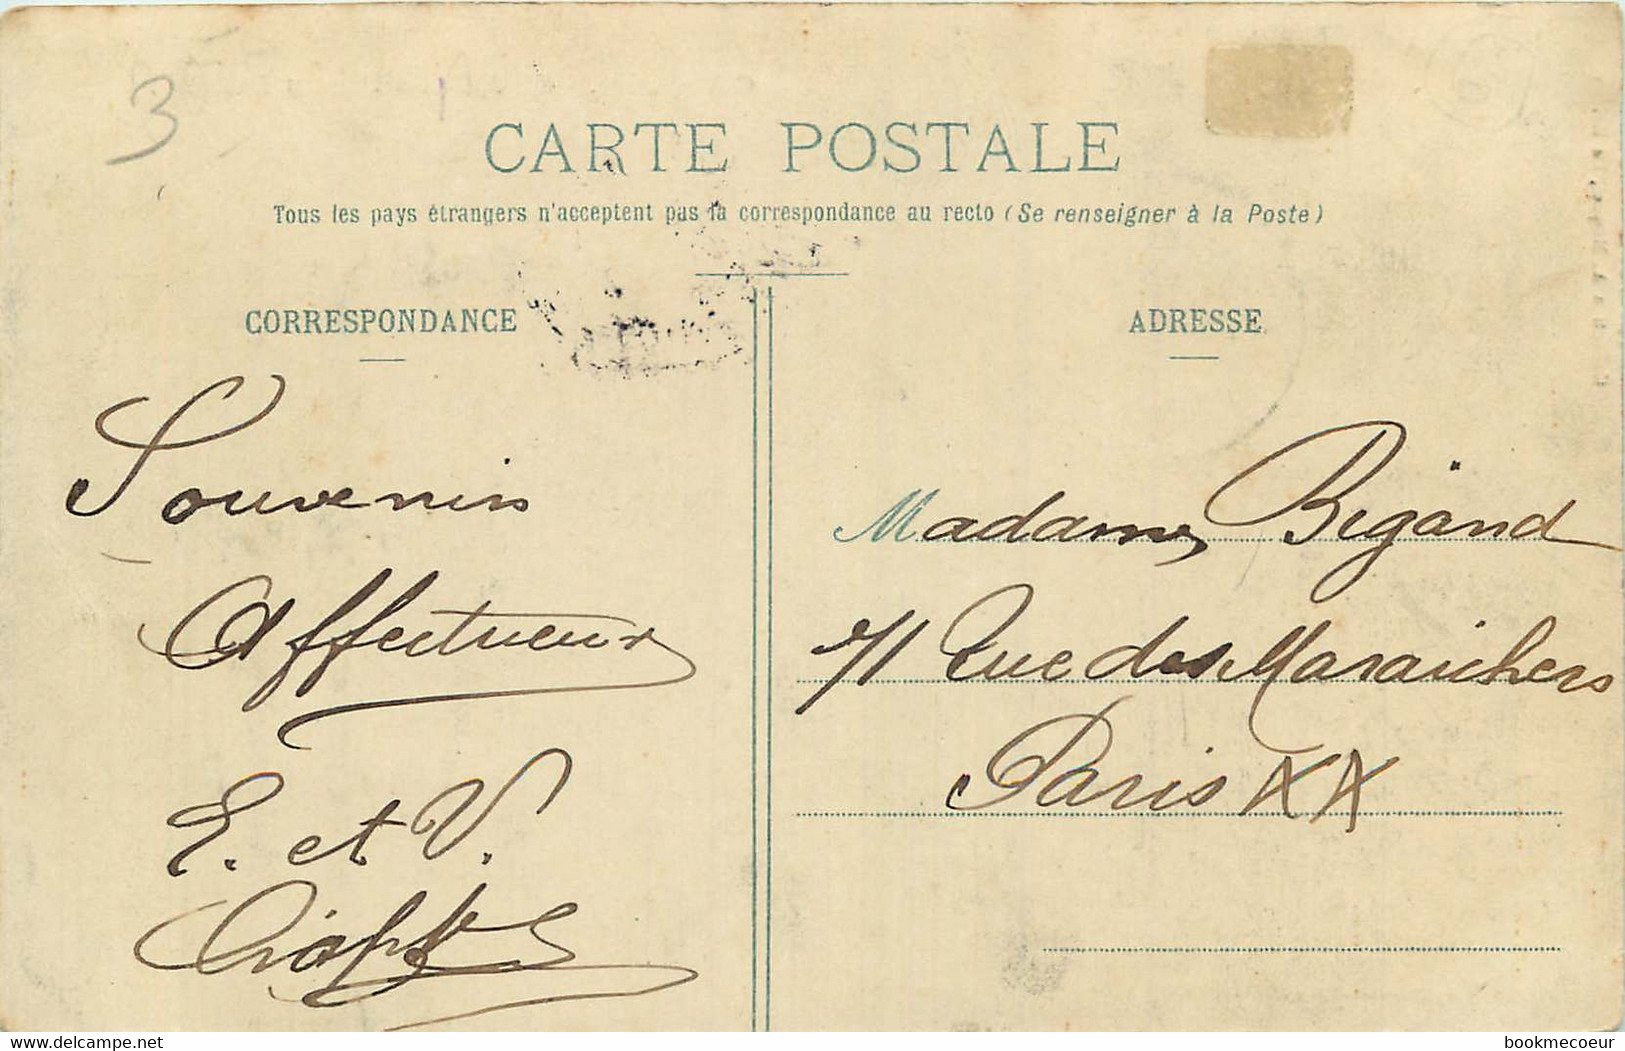 3
CARTE POSTALE
Tous les pays étrangers n'acceptent pas la correspondance au recto (Se renseigner à la Poste)
CORRESPONDANCE
Souvenirs
Affectueux
E. et V.
ADRESSE
Madame Bigand
71 Rue des Maraichers
Paris XX
delcampe.net
bookmecoeur